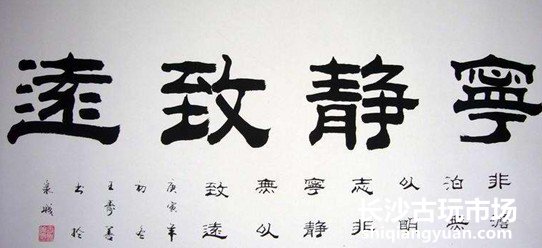 寧静致遠
非澹
泊無
以明
志非
寧静
無以
致遠
庚寅年
初
王壽善
書於
泉城
长沙古玩市场
hiqiangyun.com